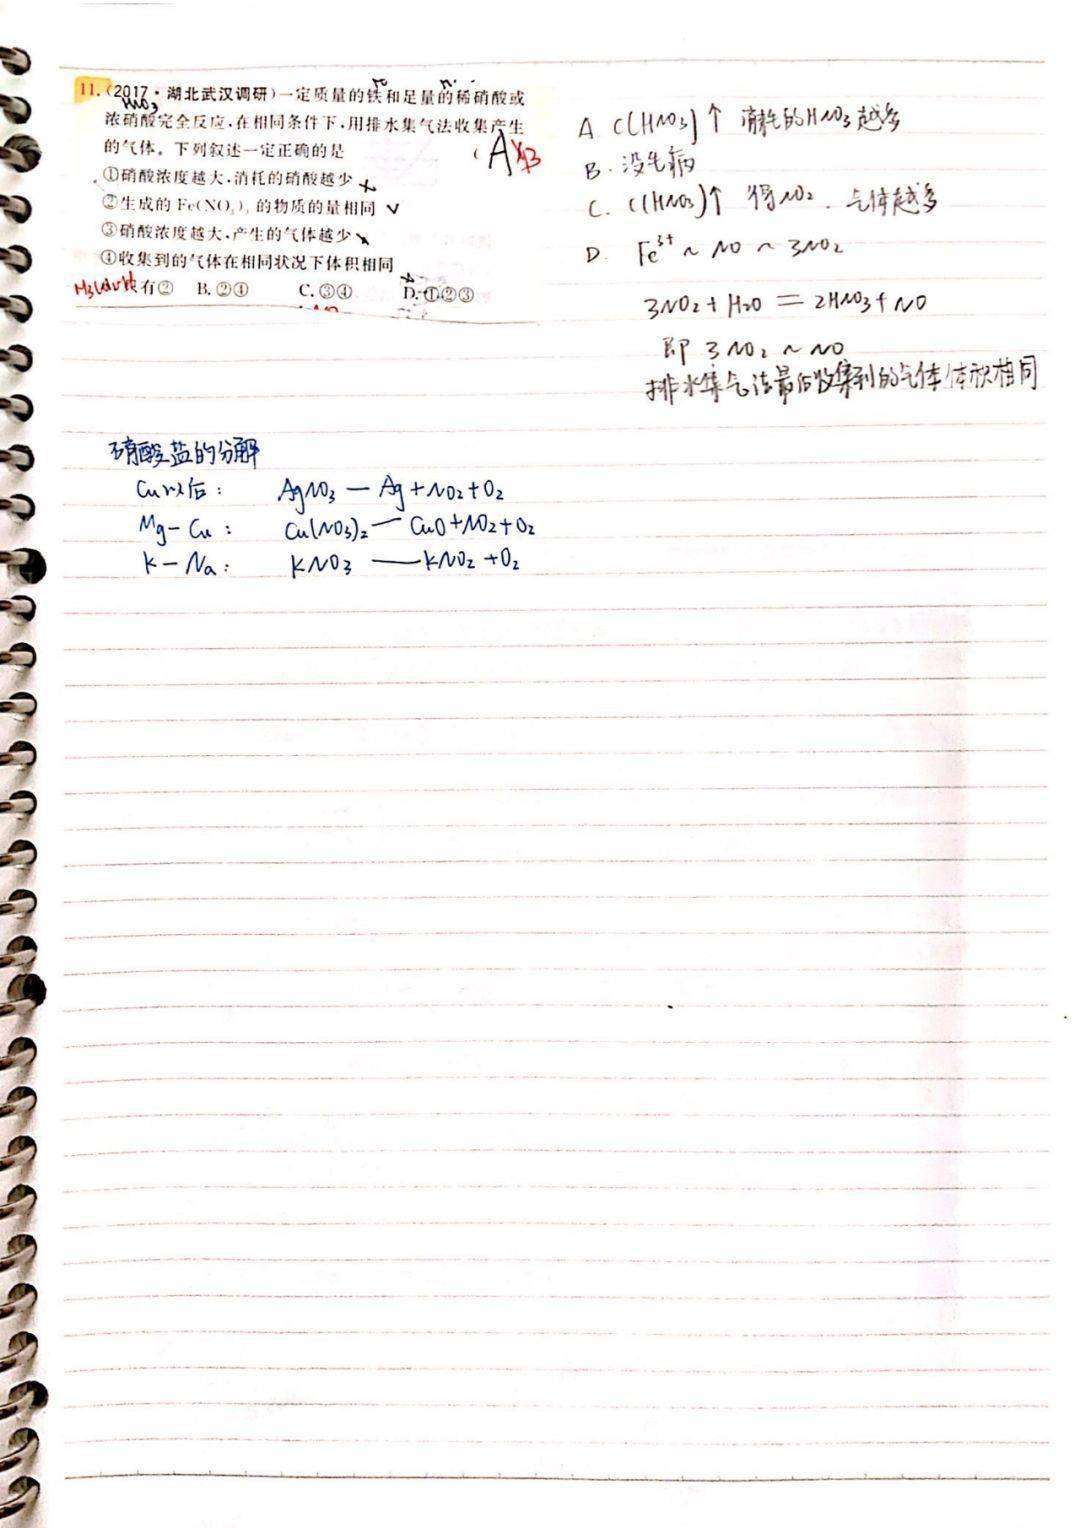 11.(2017·湖北武汉调研)一定质量的铁和足量的稀硝酸或
浓硝酸完全反应,在相同条件下,用排水集气法收集产生
的气体。下列叙述一定正确的是
( A B
①硝酸浓度越大,消耗的硝酸越少 ×
②生成的 Fe(NO₃)₃ 的物质的量相同 √
③硝酸浓度越大,产生的气体越少 ×
④收集到的气体在相同状况下体积相同
只有② B.②④ C.③④ D.①②③
A. C(HNO₃)↑ 消耗的HNO₃越多
B. 没毛病
C. C(HNO₃)↑ 得NO₂. 气体越多
D. Fe³⁺ ~ NO ~ 3NO₂
3NO₂+H₂O = 2HNO₃+NO
即 3NO₂ ~ NO
排水集气法最后收集到的气体体积相同
硝酸盐的分解
Cu以后: AgNO₃ — Ag+NO₂+O₂
Mg-Cu: Cu(NO₃)₂ — CuO+NO₂+O₂
K-Na: KNO₃ — KNO₂+O₂